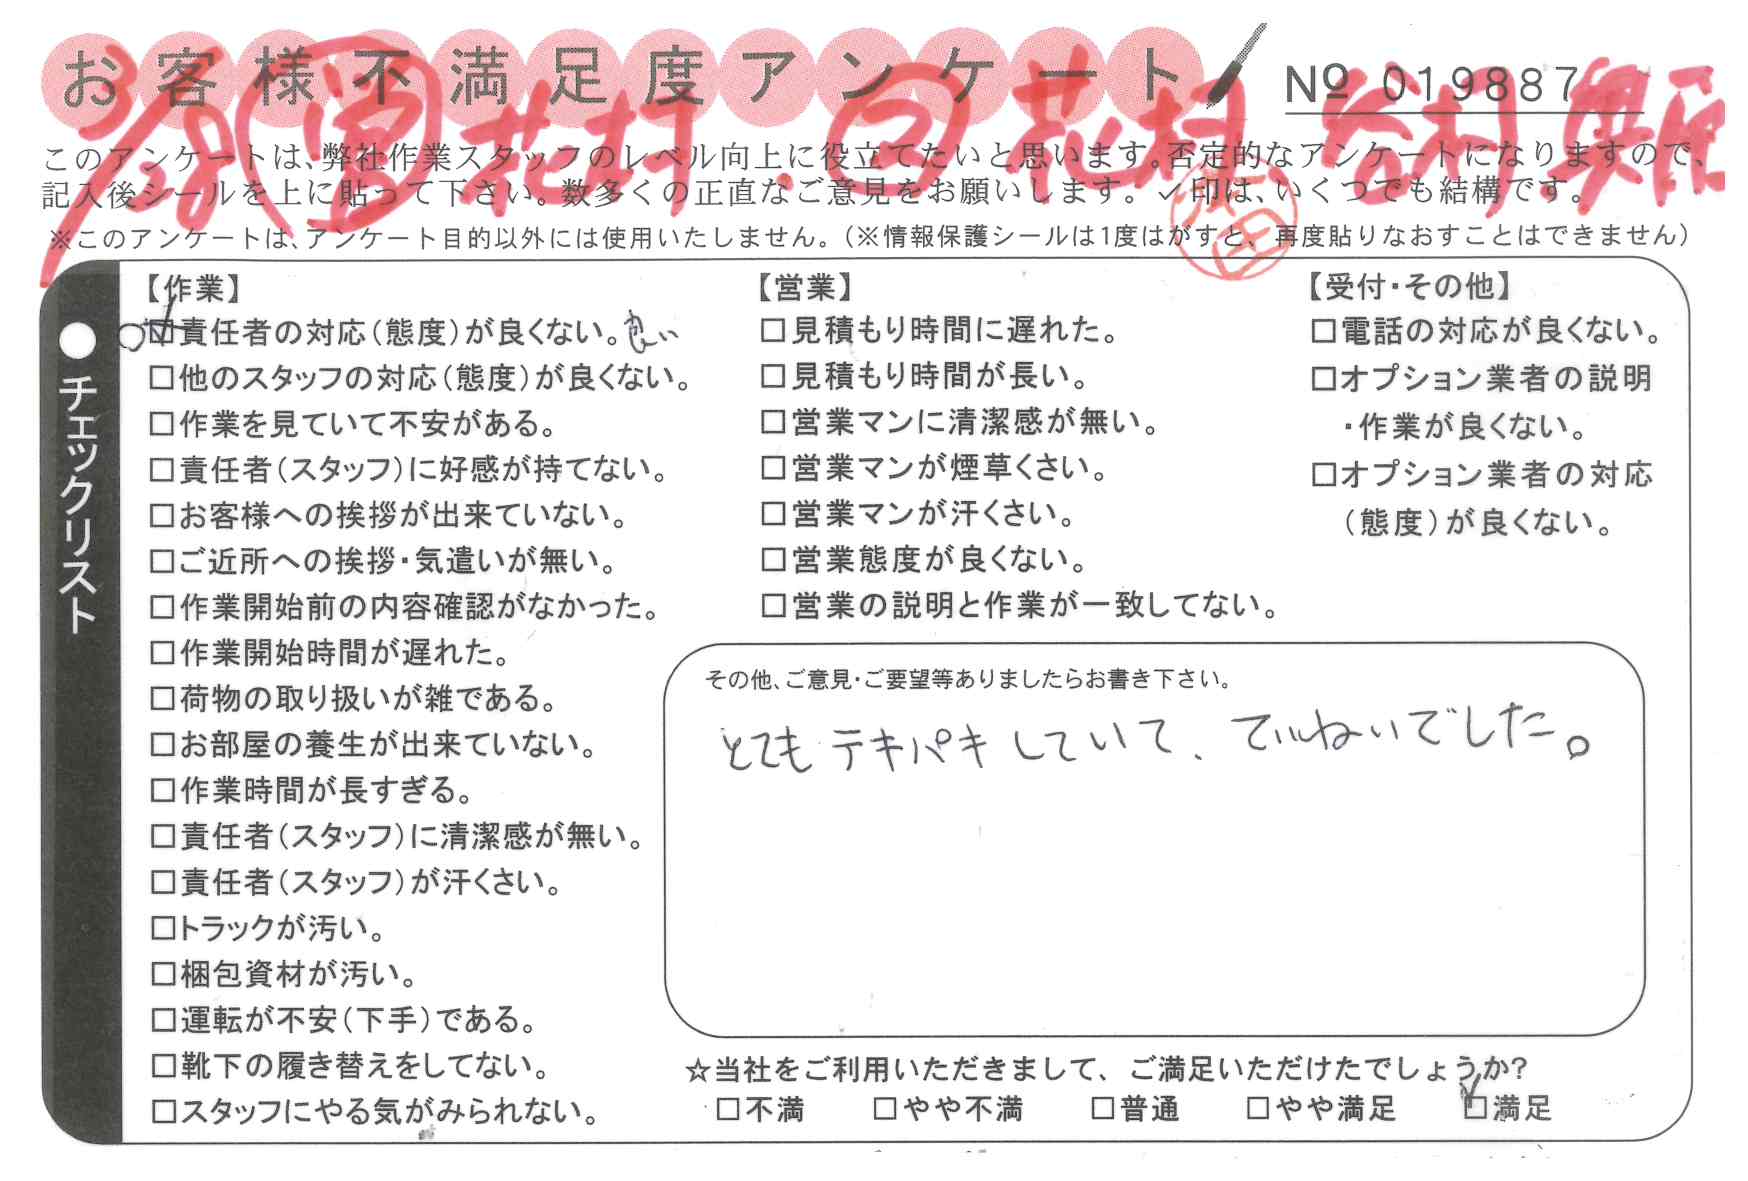 お客様不満足度アンケート
№ 019887
花村 花村 谷村 奥原
このアンケートは、弊社作業スタッフのレベル向上に役立てたいと思います。否定的なアンケートになりますので、
記入後シールを上に貼って下さい。数多くの正直なご意見をお願いします。✓印は、いくつでも結構です。
※このアンケートは、アンケート目的以外には使用いたしません。（※情報保護シールは1度はがすと、再度貼りなおすことはできません）
●チェックリスト
【作業】
☑責任者の対応（態度）が良くない。良い
□他のスタッフの対応（態度）が良くない。
□作業を見ていて不安がある。
□責任者（スタッフ）に好感が持てない。
□お客様への挨拶が出来ていない。
□ご近所への挨拶・気遣いが無い。
□作業開始前の内容確認がなかった。
□作業開始時間が遅れた。
□荷物の取り扱いが雑である。
□お部屋の養生が出来ていない。
□作業時間が長すぎる。
□責任者（スタッフ）に清潔感が無い。
□責任者（スタッフ）が汗くさい。
□トラックが汚い。
□梱包資材が汚い。
□運転が不安（下手）である。
□靴下の履き替えをしてない。
□スタッフにやる気がみられない。
【営業】
□見積もり時間に遅れた。
□見積もり時間が長い。
□営業マンに清潔感が無い。
□営業マンが煙草くさい。
□営業マンが汗くさい。
□営業態度が良くない。
□営業の説明と作業が一致してない。
【受付・その他】
□電話の対応が良くない。
□オプション業者の説明
・作業が良くない。
□オプション業者の対応
（態度）が良くない。
その他、ご意見・ご要望等ありましたらお書き下さい。
とてもテキパキしていて、ていねいでした。
☆当社をご利用いただきまして、ご満足いただけたでしょうか?
□不満 □やや不満 □普通 □やや満足 ☑満足